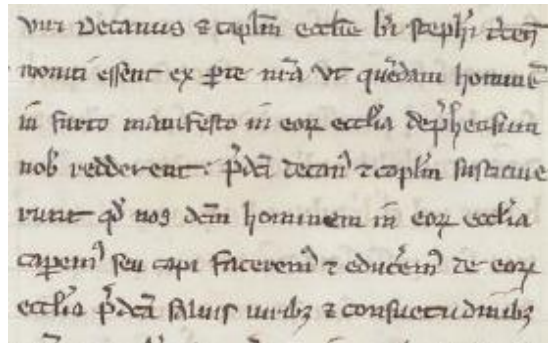 viri Decanus ⁊ caplm̄ eccl̄ie bt̄i steph̓i trecen̄
moniti essent ex ꝑte nr̄a vt quēdam hominē
in furto manifesto in eoꝝ eccl̄ia dep̓hensum
nob̓ redderent: p̓dc̄i decan̓ ⁊ caplm̄ sustinue
runt qd̓ nos dc̄m hominem in eoꝝ eccl̄ia
caperem̓ seu capi facerem̓ ⁊ educerem̓ de eoꝝ
eccl̄ia p̓dc̄a saluis iuribꝫ ⁊ consuetudinibꝫ